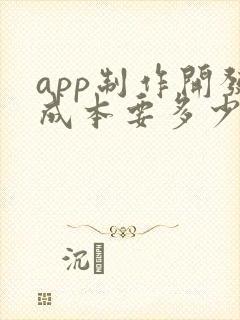 app制作開發
成本要多少
沉